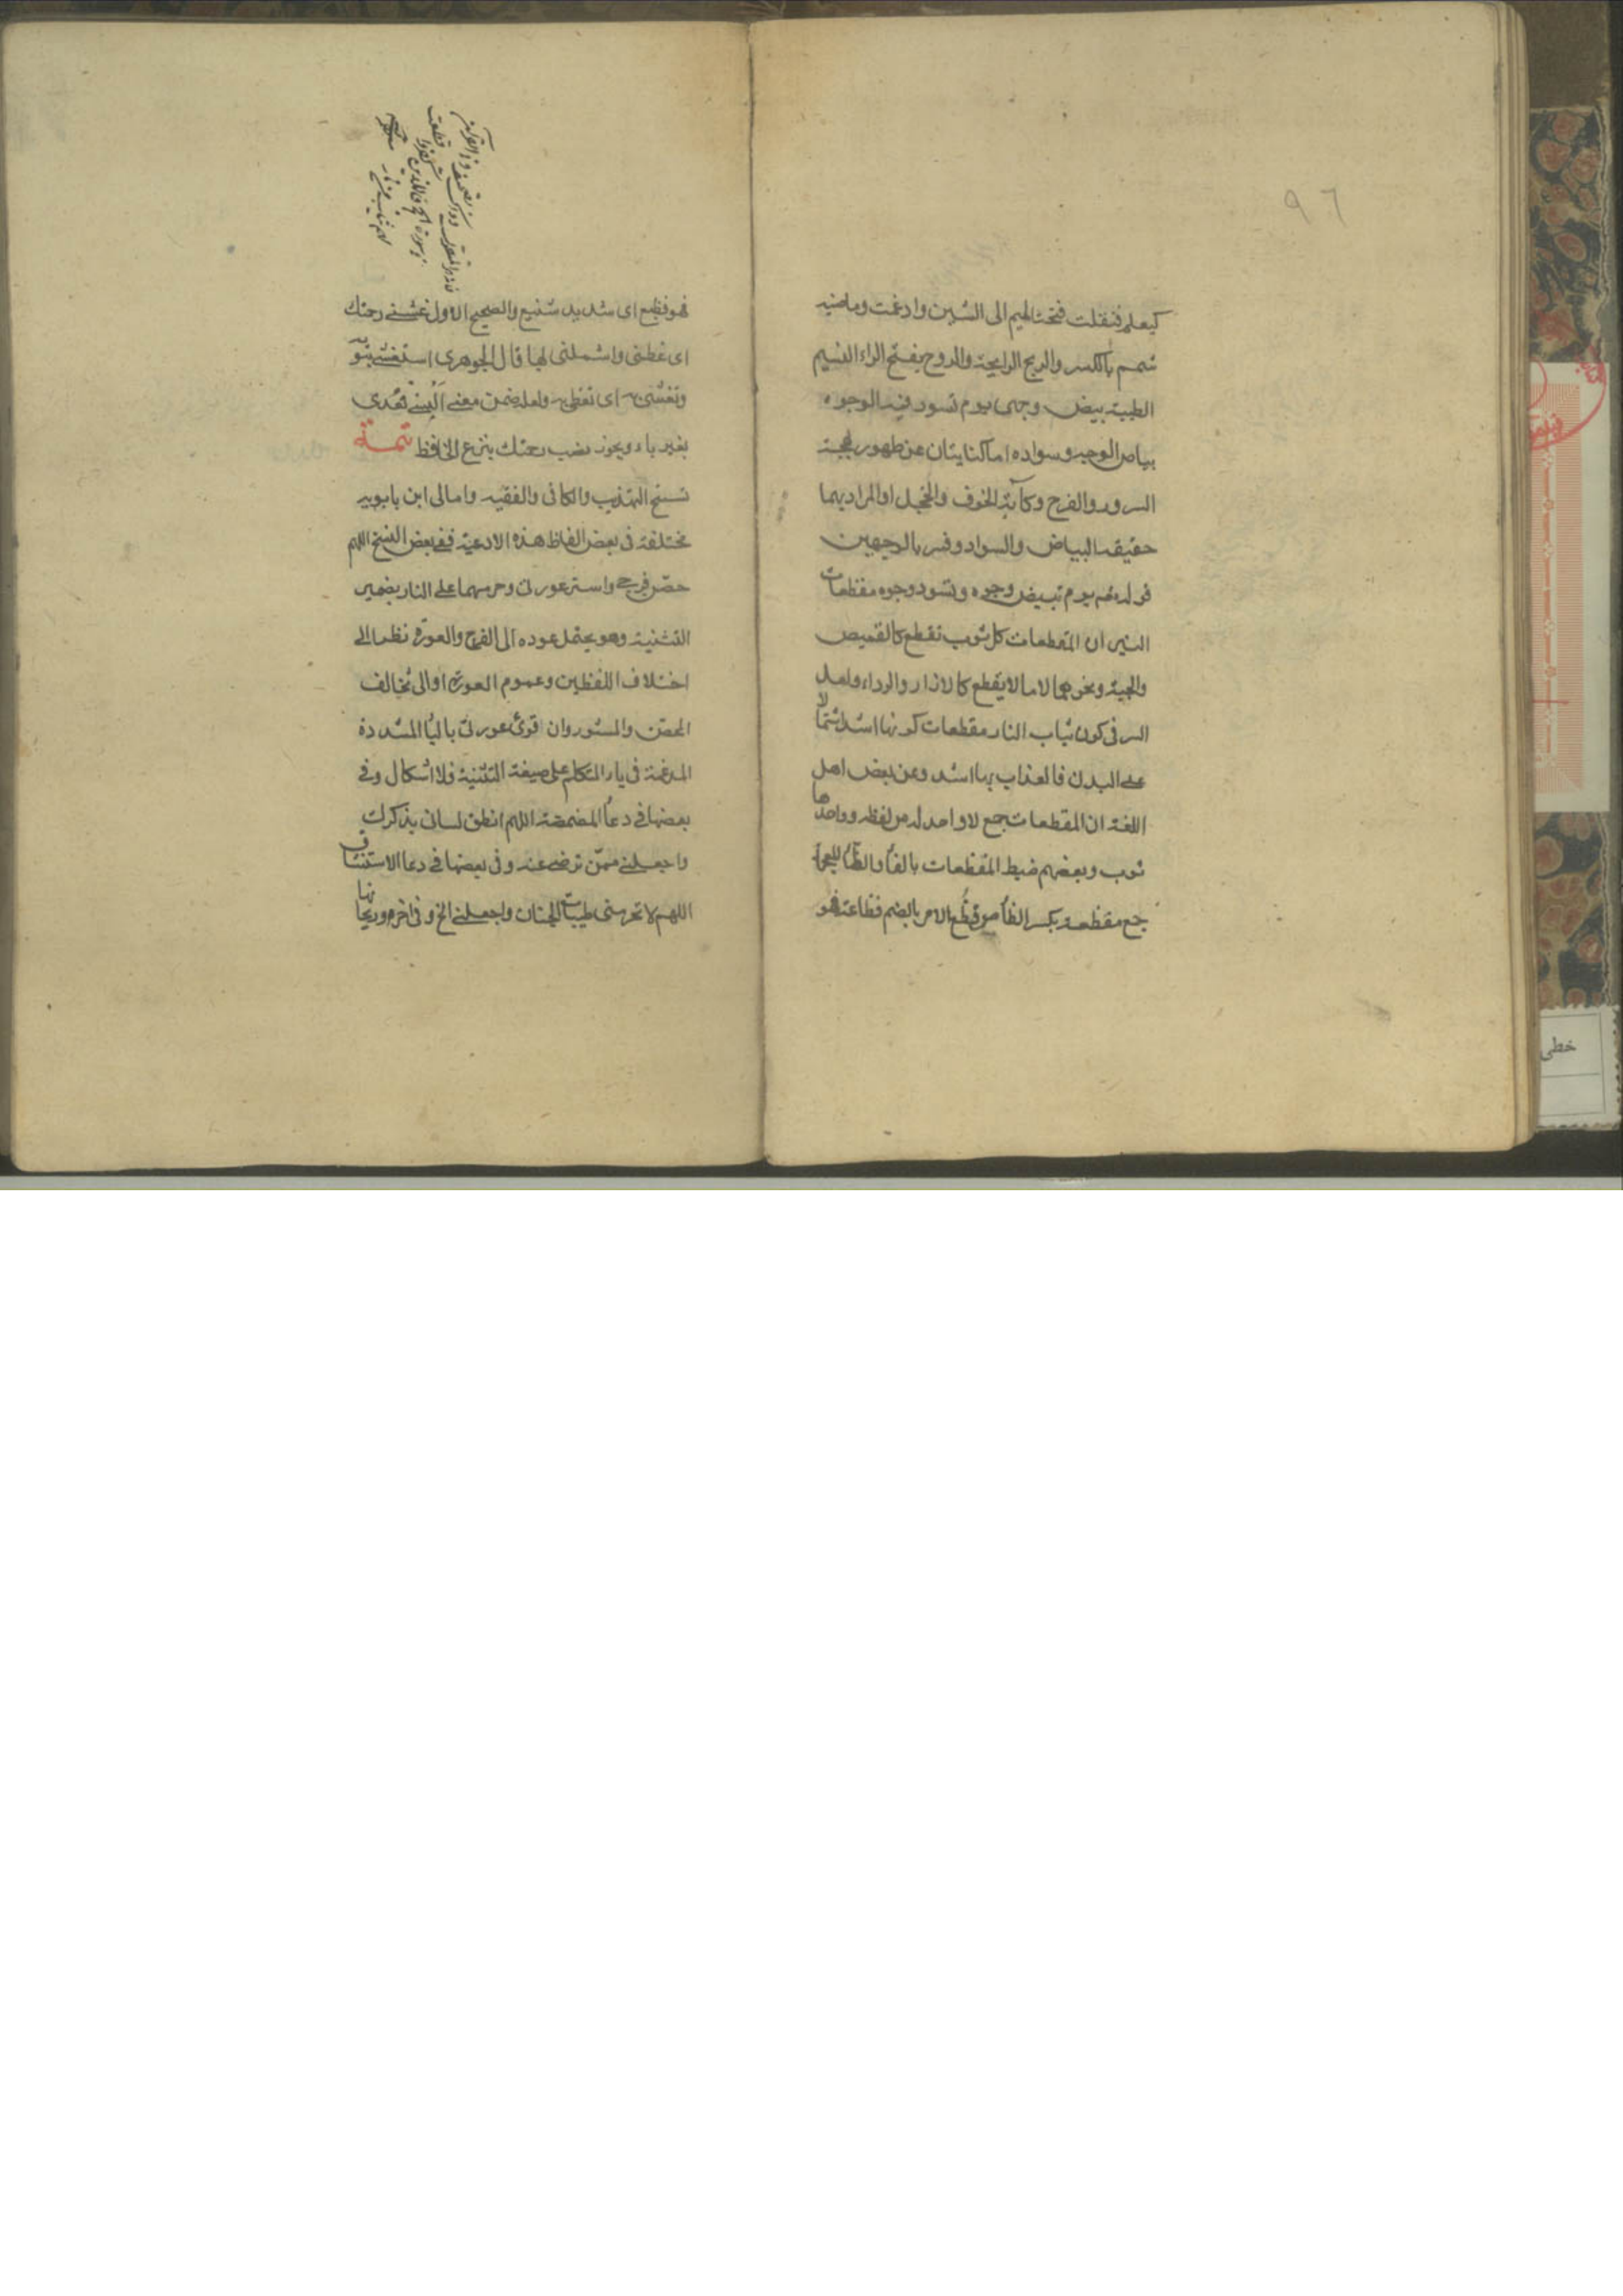 ٩٦
كيعلم فنقلت فتحة الميم الى الشين وادغمت وماضيه
شمم بالكسر والريح الرايحة والروح بفتح الراء النسيم
الطيبة بيض وجهى يوم تسود فيه الوجوه
بياض الوجه وسواده اما كنايتان عن ظهور بهجة
السرور والفرح وكآبة الخوف والخجل او المراد بهما
حقيقة البياض والسواد وفسر بالوجهين
قوله تعم يوم تبيض وجوه وتسود وجوه مقطعات
النيران المقطعات كل ثوب تقطع كالقميص
والجبة ونحوهما لا ما لا يقطع كالازار والرداء ولعل
السر فى كون ثياب النار مقطعات كونها اشد اشتمالا
على البدن فالعذاب بها اشد وعن بعض اهل
اللغة ان المقطعات جمع لا واحد له من لفظه وواحدها
ثوب وبعضهم ضبط المفظعات بالفاء والظاء المعجمة
جمع مفظعة بكسر الظاء من فظُع الامر بالضم فظاعة فهو
فهو فظيع اى شديد شنيع والصحيح الاول غشنى رحمتك
اى غطنى واشملنى لها قال الجوهرى استغشى بثوبه
وتغشى به اى تغطى به ولعله ضمن معنى البسنى فعدى
بغير باء ويجوز نصب رحمتك بنزع الخافظ تتمة
نسخ التهذيب والكافى والفقيه وامالى ابن بابويه
مختلفة فى بعض الفاظ هذه الادعية ففى بعض النسخ اللهم
حصّن فرجى واستر عورتى وحرمهما على النار بضمير
التثنية وهو يحتمل عوده الى الفرج والعورة نظرا الى
اختلاف اللفظين وعموم العورة او الى تخالف
المحصّن والمستور وان قرئ عورتى بالياء المشددة
المدغمة فى ياء المتكلم على صيغة التثنية فلا اشكال وفى
بعضها فى دعاء المضمضة اللهم انطق لسانى بذكرك
واجعلنى ممّن ترضى عنه وفى بعضها فى دعا الاستنشاق
اللهم لا تحرمنى طيبات الجنان واجعلنى الخ وفى اخره وريحانها
خطى